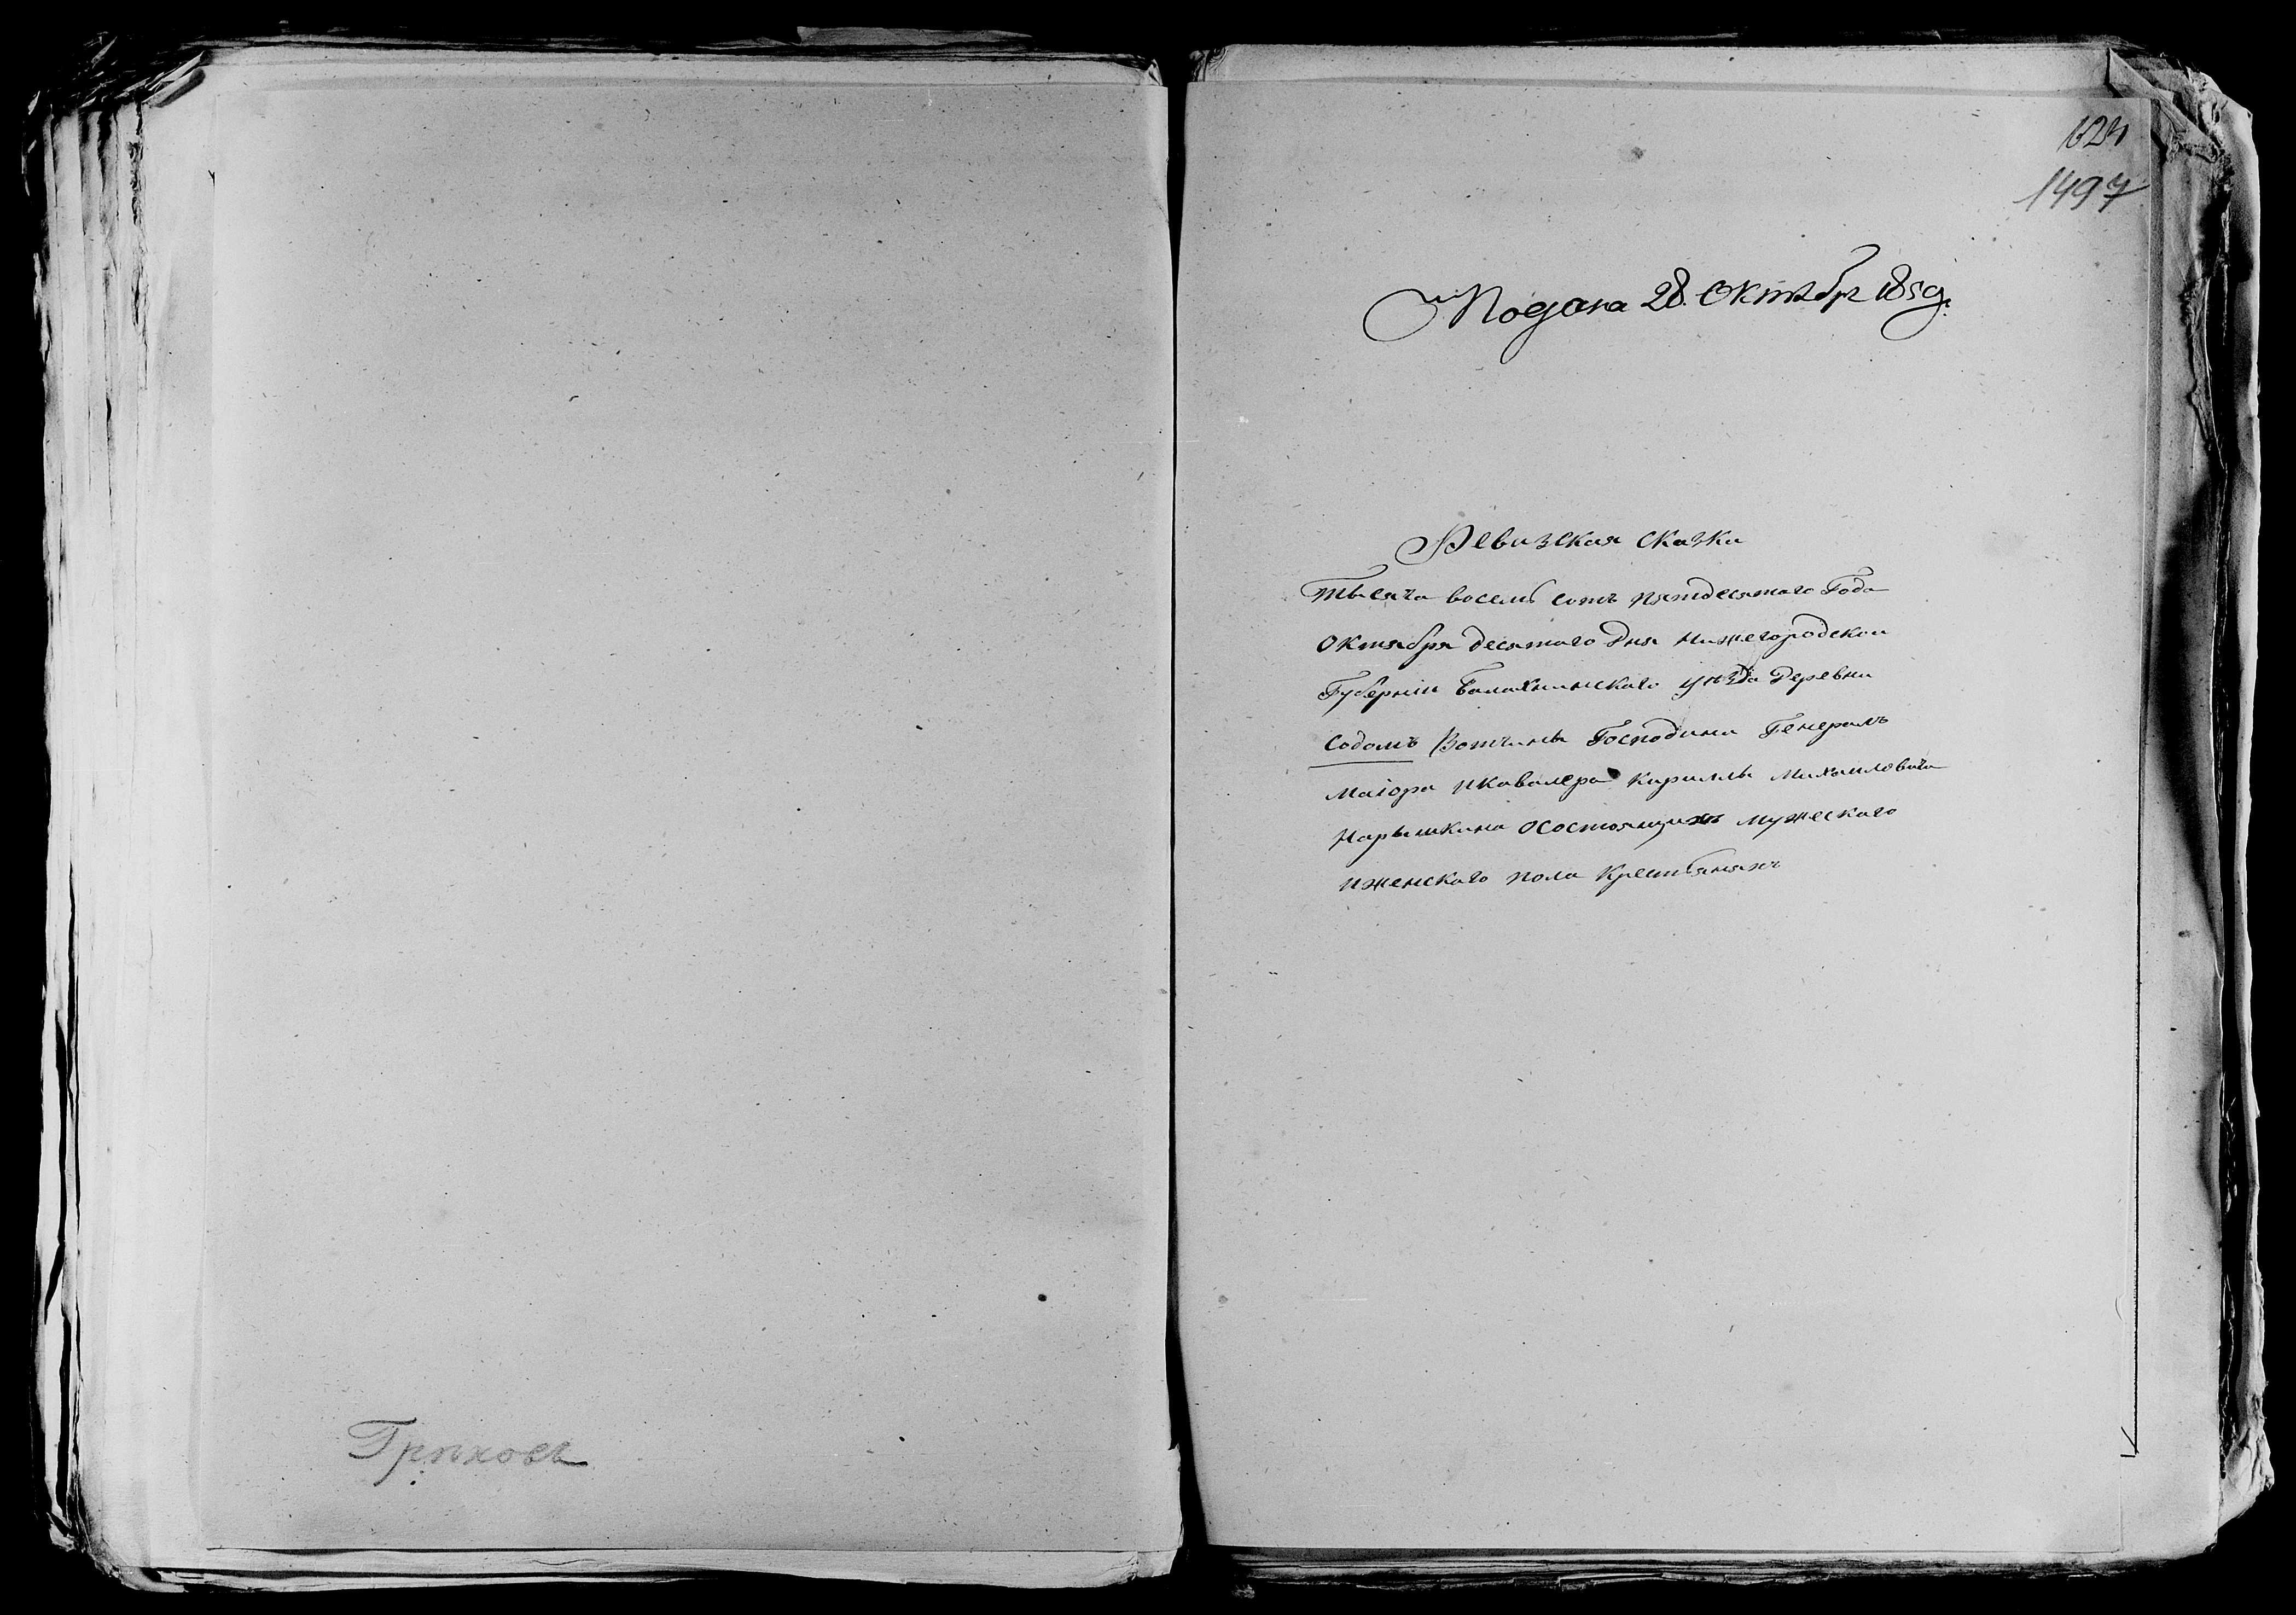 Грѣховъ
1497
Подана 28. Октября 1850
Ревизская сказка
Тысяча восемь сотъ пятдесятаго Года
Октября десятаго Дня Нижегородской
Губерніи Балахнинскаго уѣзда Деревни
Содомъ Вотчины Господина Генералъ
Маіора икавалера Кириллы Михаиловича
Нарышкина осостоящихъ мужескаго
иженскаго пола Крестьянахъ